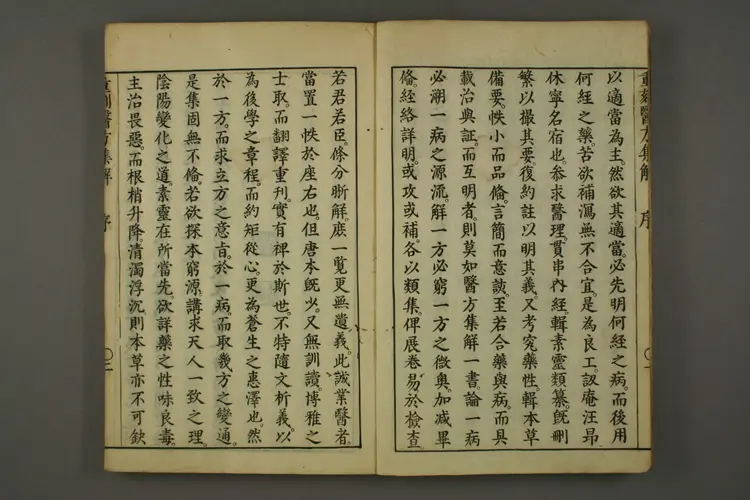 以適當為主。然欲其適當。必先明何經之病。而後用
何經之藥。苦欲補瀉無不合宜。是為良工。訒庵汪昻
休寧名宿也。參求醫理。貫串內經。輯素靈類纂。既刪
繁以撮其要。復約註以明其義。又考究藥性。輯本草
備要。帙小而品備。言簡而意該。至若合藥與病。而具
載治典証。而互明者。則莫如醫方集解一書。論一病
必溯一病之源流。解一方必窮一方之微奧。加減畢
備。經絡詳明。或攻或補。各以類集。俾展卷易於檢查。
重刻醫方集解 序
若君若臣。條分晰解。庶一覧更無遺義。此誠業醫者。
當置一帙於座右也。但唐本既少。又無訓讀。博雅之
士取。而翻譯重刊。實有裨於斯世。不特隨文析義。以
為後學之章程。而約矩從心。更為蒼生之惠澤也。然
於一方。而求立方之意旨。於一病。而取幾方之變通。
是集固無不備。若欲探本窮源。講求天人一致之理。
陰陽變化之道。素靈在所當先。欲詳藥之性味良毒。
主治畏惡。而根梢升降。清濁浮沉則本草亦不可缺
重刻醫方集解 序